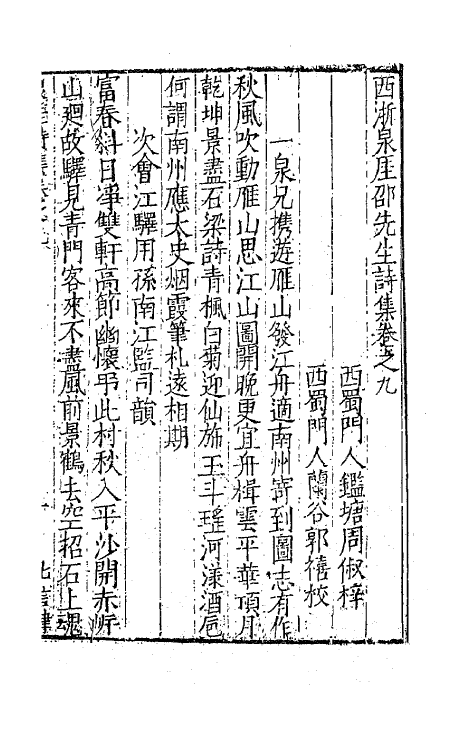 西浙泉厓邵先生詩集卷之九
西蜀門人鑑塘周俶梓
西蜀門人蘭谷郭禧校
一泉兄携遊雁山發江舟適南州寄到圖志有作
秋風吹動雁山思江山圖開晚更宜舟楫雲平華頂月
乾坤景盡石梁詩青楓白菊迎仙斾玉斗瑤河漾酒巵
何謂南州應太史烟霞筆札遠相期
次會江驛用孫南江監司韻
富春斜日凈雙軒高節幽懷弔此村秋入平沙開赤岸
山廻故驛見青門客來不盡風前景鶴去空招石上魂